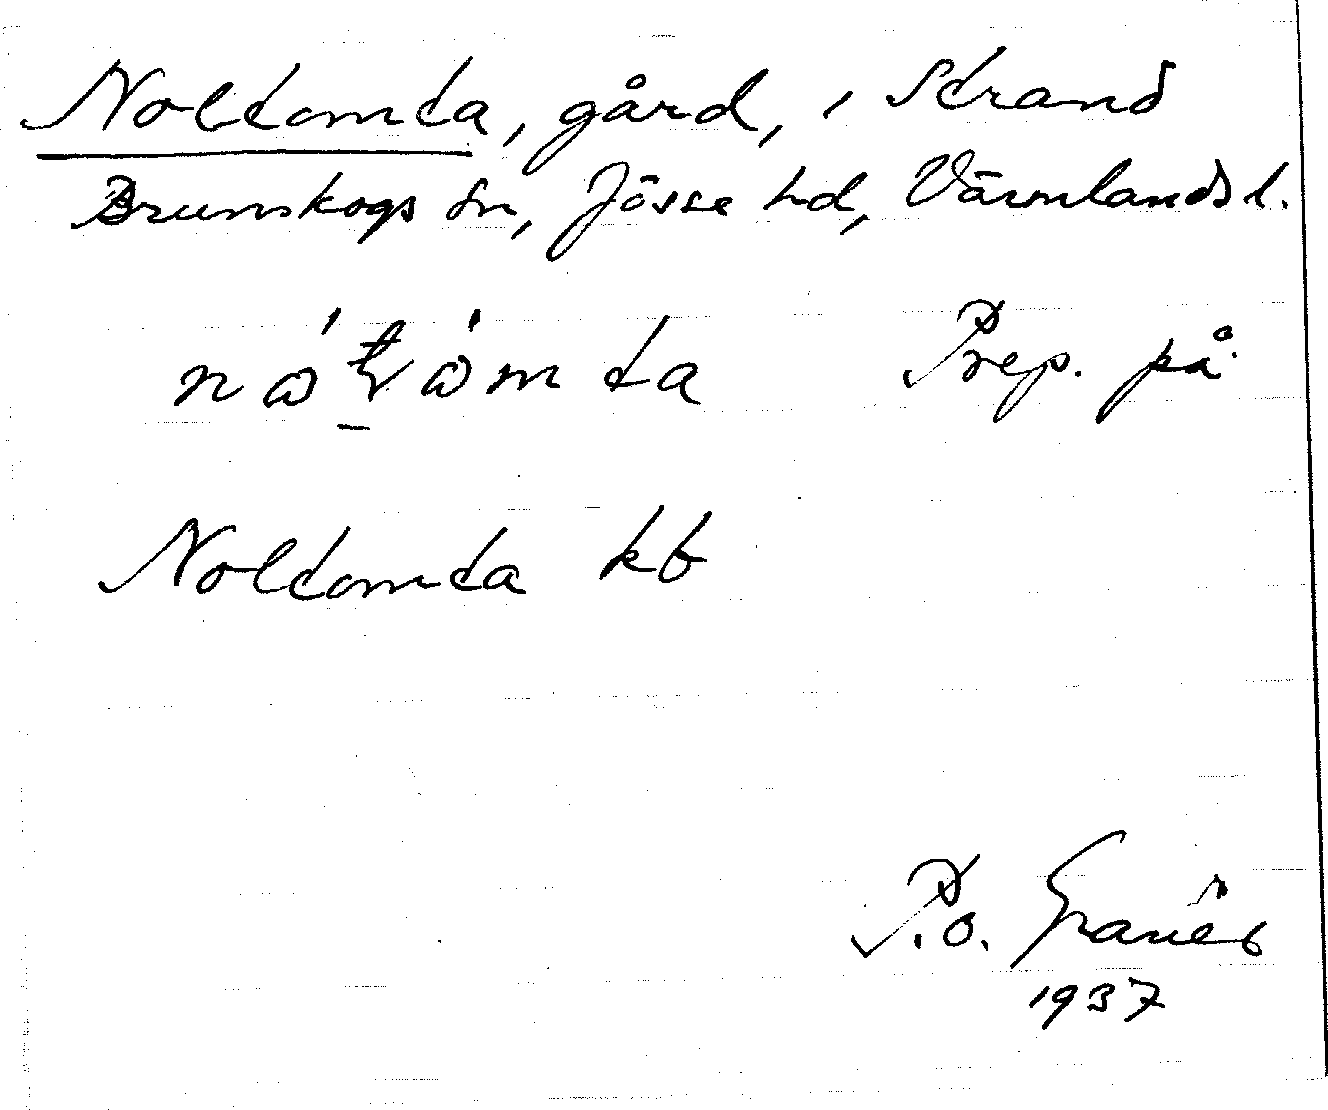 Noltomta, gård, i Strand
Brunskogs sn, Jösse hd, Värmlands l.
Prep. på
Noltomta kb
P.O. Granér
1937